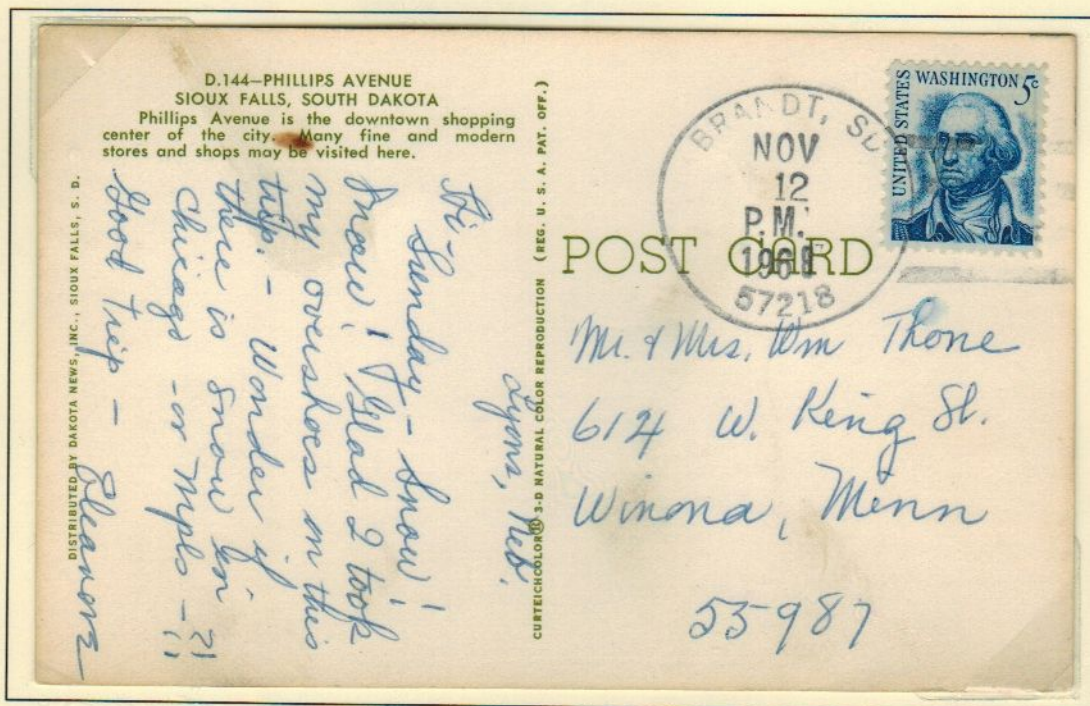 D.144—PHILLIPS AVENUE
SIOUX FALLS, SOUTH DAKOTA
Phillips Avenue is the downtown shopping
center of the city. Many fine and modern
stores and shops may be visited here.
DISTRIBUTED BY DAKOTA NEWS, INC., SIOUX FALLS, S. D.
Lyons, Neb.
Hi -
Sunday - Snow!
Snow! Glad I took
my overshoes on this
trip. - Wonder if
there is snow in
Chicago - or Mpls - ?!
Good Trip - Eleanore
CURTEICHCOLOR® 3-D NATURAL COLOR REPRODUCTION (REG. U. S. A. PAT. OFF.)
POST CARD
BRANDT, SD
NOV
12
P.M.
57218
UNITED STATES WASHINGTON 5c
Mr. & Mrs. Wm Thone
614 W. King St.
Winona, Minn
55987